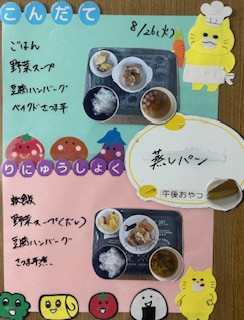 こんだて
8/26(火)
ごはん
野菜スープ
豆腐ハンバーグ
ベイクドさつま芋
蒸しパン
午後おやつ
りにゅうしょく
軟飯
野菜スープ(だし)
豆腐ハンバーグ
さつま芋煮